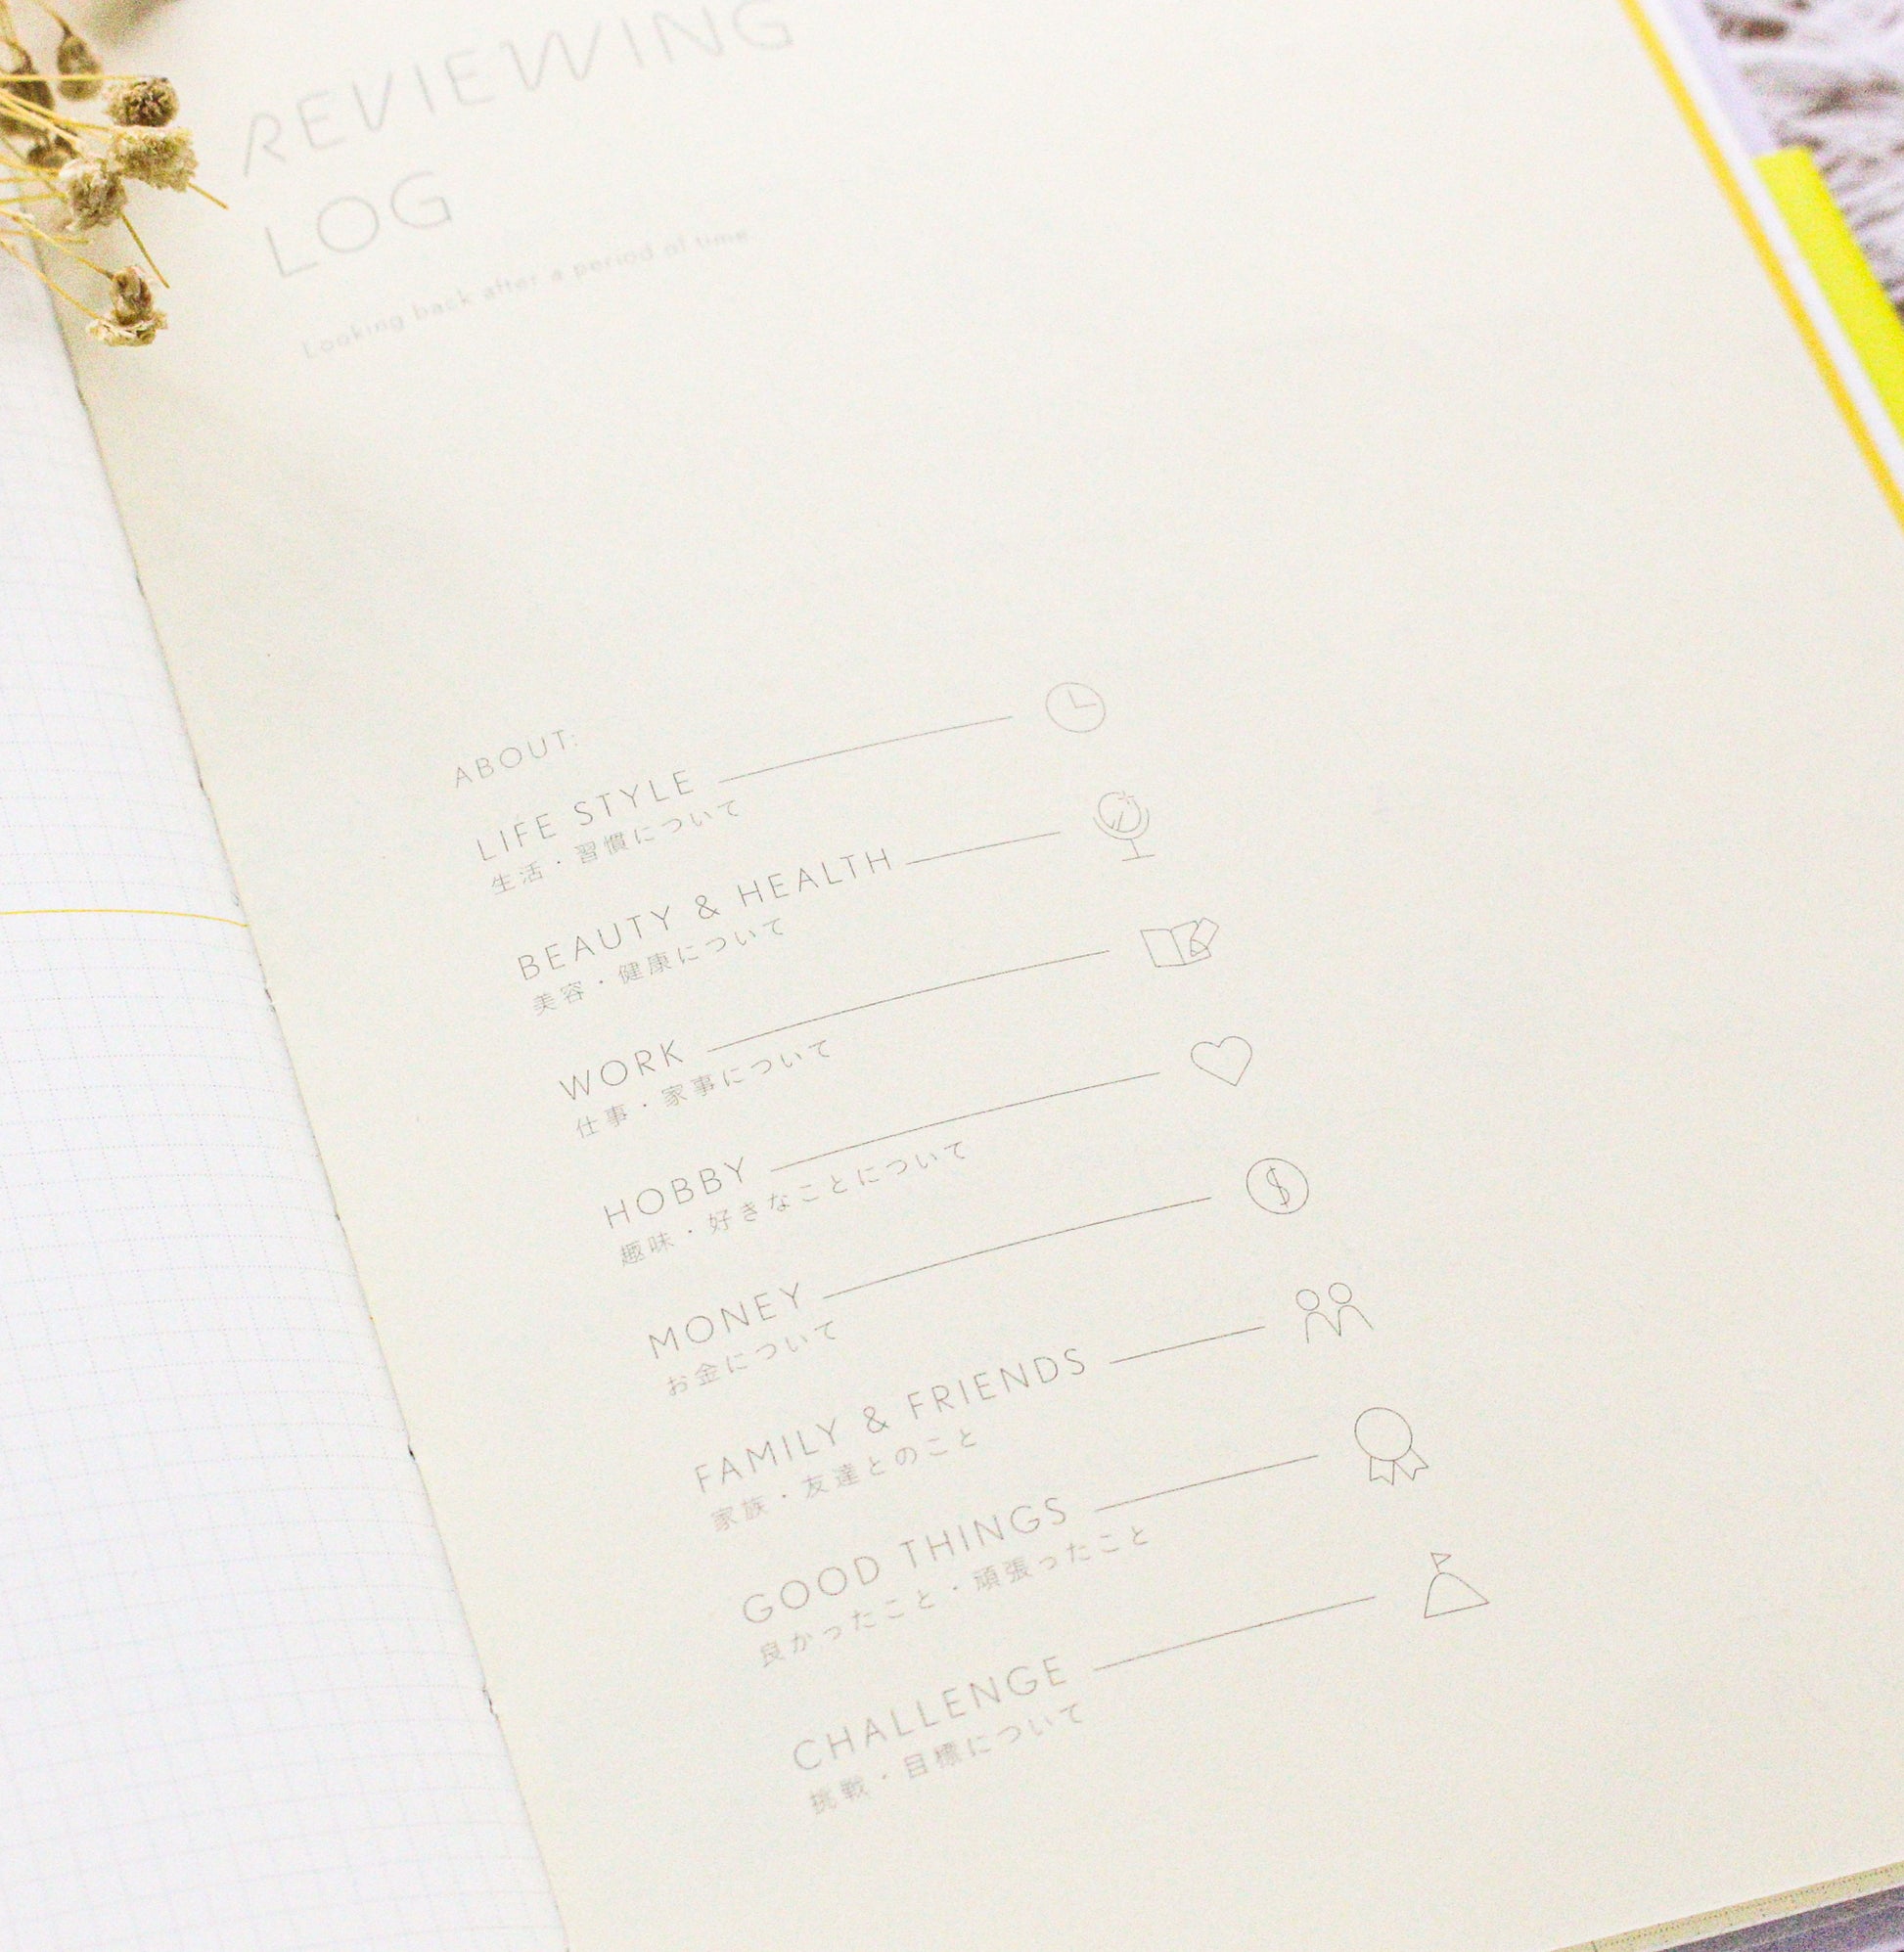 REVIEWING
LOG
Looking back after a period of time
ABOUT:
LIFE STYLE
生活・習慣について
BEAUTY & HEALTH
美容・健康について
WORK
仕事・家事について
HOBBY
趣味・好きなことについて
$
MONEY
お金について
FAMILY & FRIENDS
家族・友達とのこと
GOOD THINGS
良かったこと・頑張ったこと
CHALLENGE
挑戦・目標について